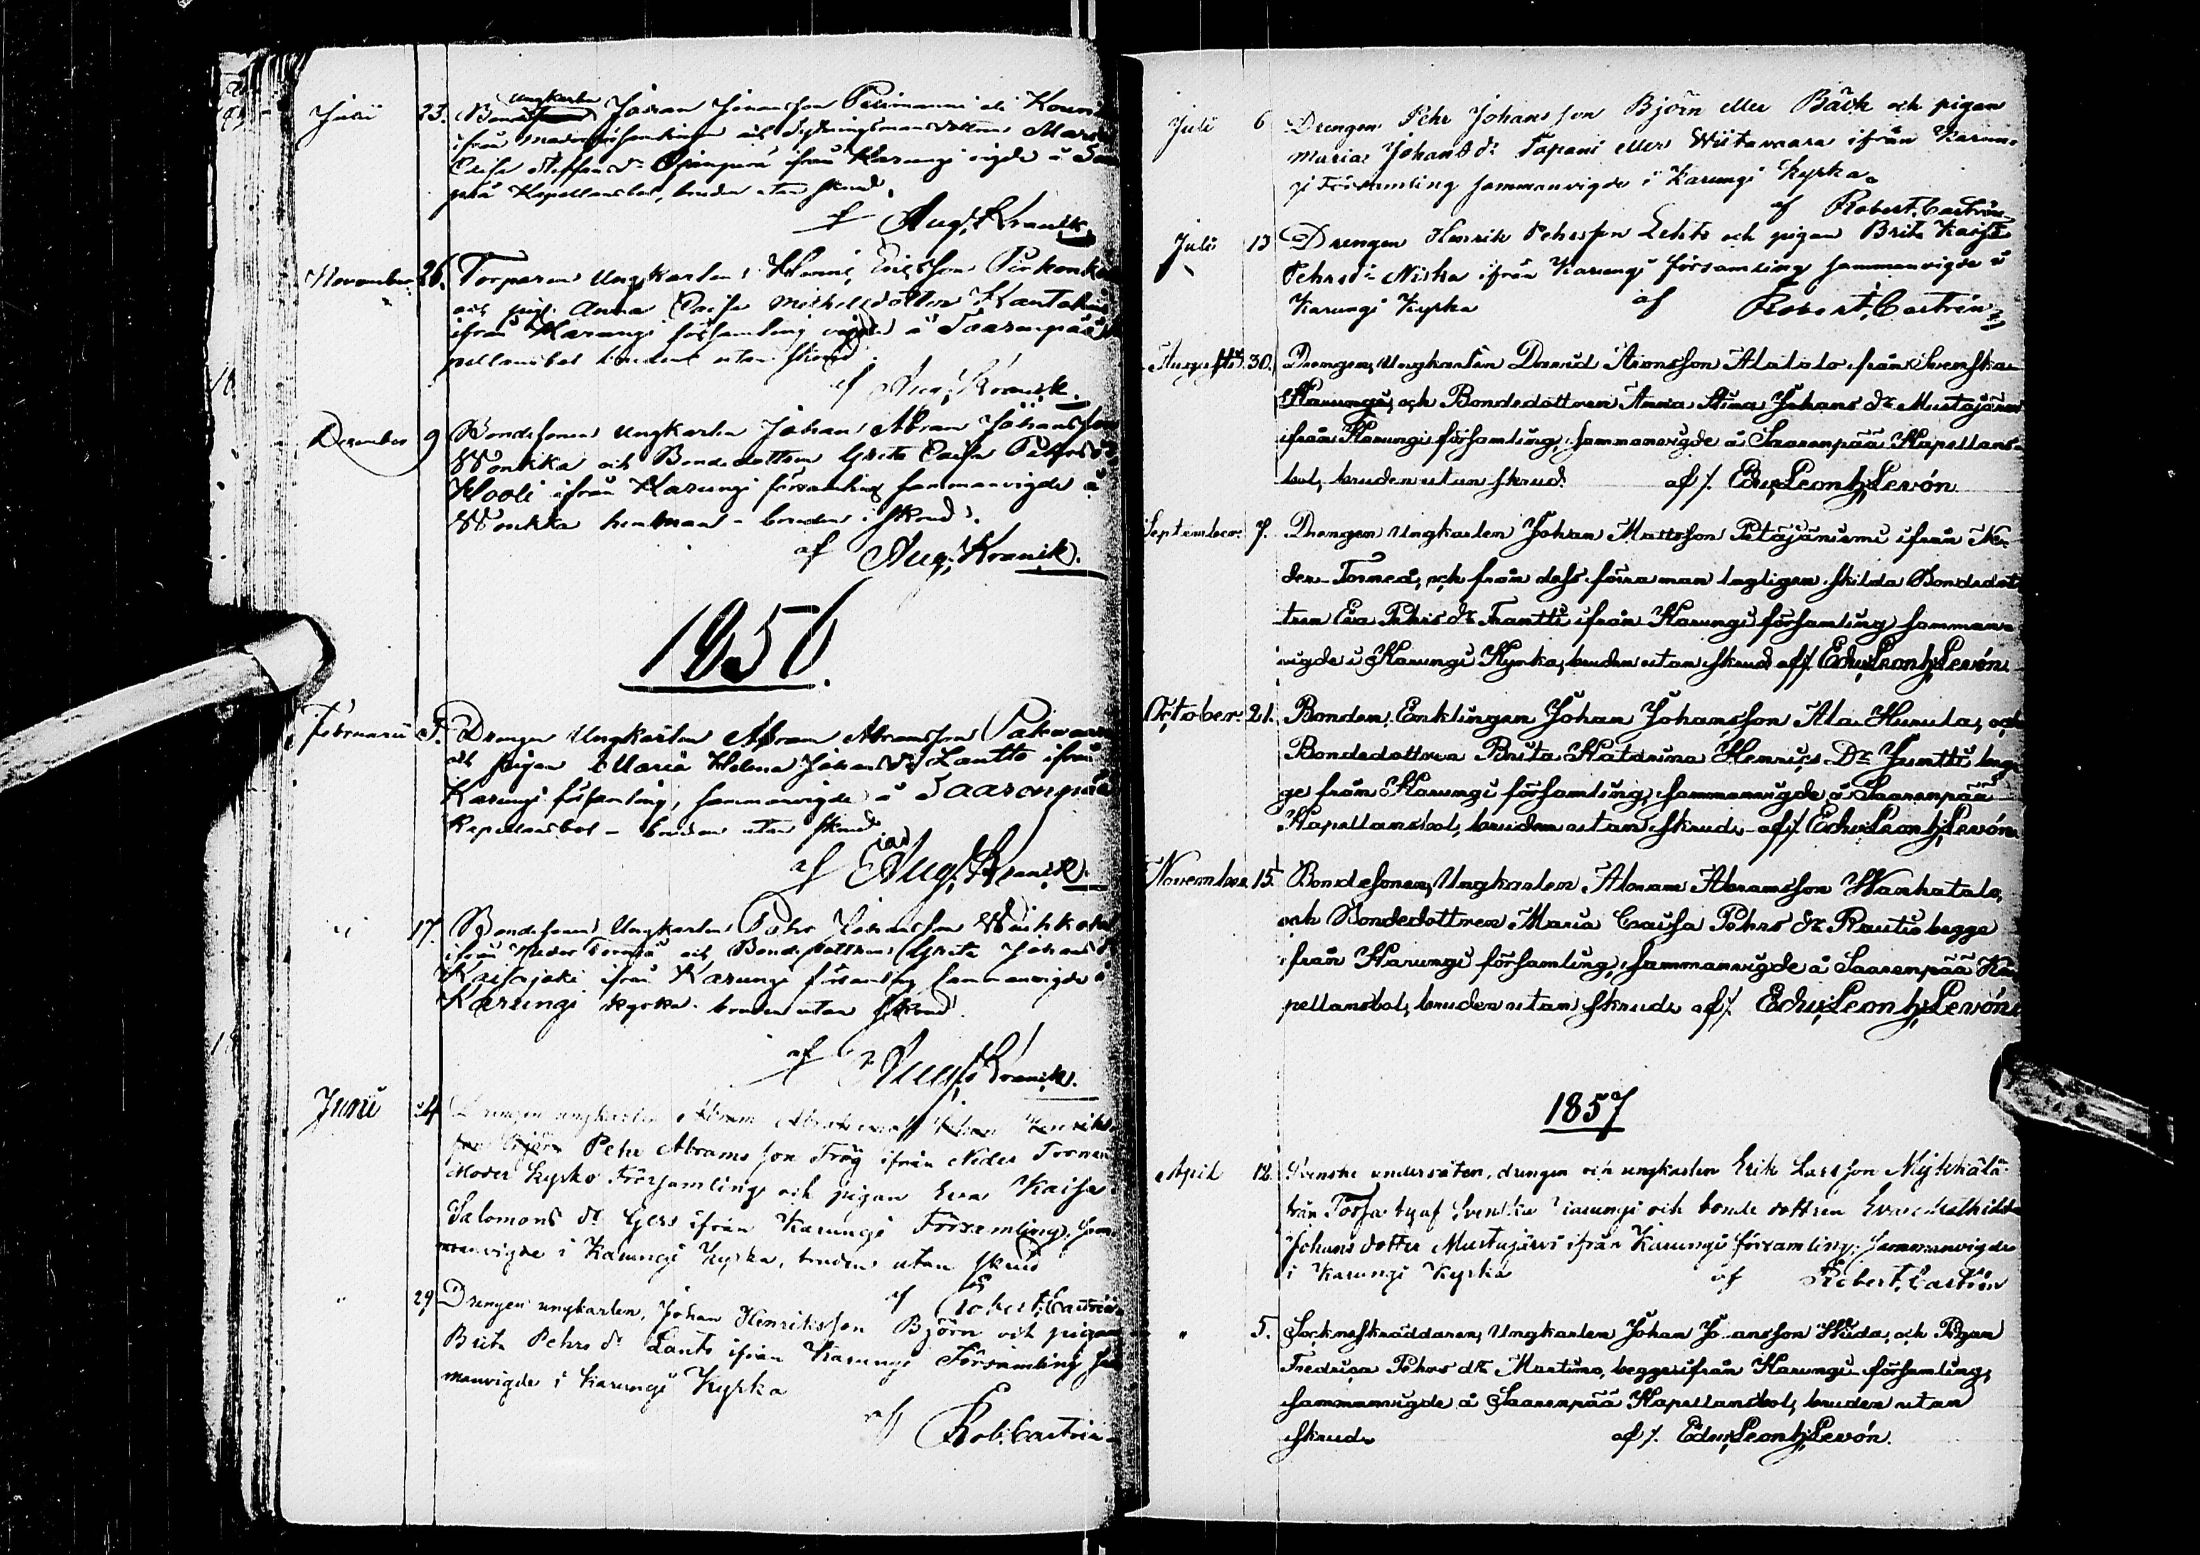 Junii 23. Ungkarlen Johan Johansson
ifrån
ifrån Karungi vigde å
Kapellansbol, bruden utan skrud.
af Aug. Kranck.
November 26. Torparen Ungkarlen Ericsson
och pig. Anna Caisa Michelsdotter
ifrån Karungi församling vigde å Saarenpää
pellansbol bruden utan skrud
af Aug. Kranck.
December 9 Bondesonen Ungkarlen Johan Abram Johansson
Wonkka och Bondedottren Greta Caisa
Kooli ifrån Karungi församling sammanvigde å
Wonkka hemman - bruden i skrud.
af Aug. Kranck.
1856.
Februarii 5. Drengen Ungkarlen Abram Abramsson
och pigan Maria Helena Johans dr Lantto ifrån
Karungi församling, sammanvigde å Saarenpää
Kapellansbol - bruden utan skrud
af Aug. Kranck.
" 17. Bondesonen Ungkarlen Pehr Johansson
ifrån Neder Torneå och Bondedottren Greta Johans
ifrån Karungi församling sammanvigde i
Karungi kyrka - bruden utan skrud.
af Aug. Kranck.
Junii 24 Drengen ungkarlen
Pehr Abramsson Fröy ifrån Neder Torneå
Moder kyrko Församling och pigan Eva Kaisa
Salomons dr Gers ifrån Karungi Församling, sam
manvigde i Karungi Kyrka, bruden utan skrud
af Robert. Castrén
" 29 Drengen ungkarlen, Johan Henriksson Björn och pigan
Brita Pehrs dr Lanto ifrån Karungi Församling sam
manvigde i Karungi Kyrka
af Rob. Castrén
Juli 6 Drengen Pehr Johansson Björn eller Bäck och pigan
Maria Johans dr Tapani eller Wiitavaara ifrån Karun-
gi Församling sammanvigde i Karungi Kyrka
af Robert. Castrén
Juli 13 Drengen Henrik Pehrsson Lehto och pigan Brita Kaisa
Pehrs dr Niska ifrån Karungi församling sammanvigde i
Karungi Kyrka af Robert. Castrén
Augusti 30. Drengen, Ungkarlen David Aronsson Alatalo från Svenska
Karungi, och Bondedottren Anna Stina Johans dr Mustajärvi
ifrån Karungi församling, sammanvigde å Saarenpää Kapellans-
bol, bruden utan skrud. af/. Edv. Leonh. Levón
September 7. Drengen Ungkarlen Johan Mattsson Petäjäniemi ifrån Ne-
der-Torneå, och från dess förra man lagligen skilda Bondedot
tren Eva Pehrs dr Frantti ifrån Karungi församling samman-
vigde i Karungi Kyrka, bruden utan skrud af/. Edv. Leonh. Levón
October. 21. Bonden, Enklingen Johan Johansson Ala Hurula, och
Bondedottren Brita Katarina Henrics Dr Juntti beg
ge från Karungi församling, sammanvigde å Saarenpää
Kapellansbol, bruden utan skrud. af/. Edv. Leonh. Levón
November 15. Bondesonen, Ungkarlen Abram Abramsson Wanhatalo,
och Bondedottren Maria Caisa Pehrs dr Rautio begge
från Karungi församling, sammanvigde å Saarenpää Ka
pellansbol, bruden utan skrud. af/. Edv. Leonh. Levón
1857
April 12 Svenske undersåten, drengen och ungkarlen Erik Larsson
från by af Svenska Karungi och bonde dottren Eva Mathilda
Johans dotter Mustajärvi ifrån Karungi församling, sammanvigde
i Karungi Kyrka af Robert. Castrén
" 5. Socknskräddaren, Ungkarlen Johan Johansson Hida, och Pigan
Fredrica Pehrs dtr Martimo, begge ifrån Karungi församling,
sammanvigde å Saarenpää Kapellansbol, bruden utan
skrud. af/. Edv. Leonh. Levón.